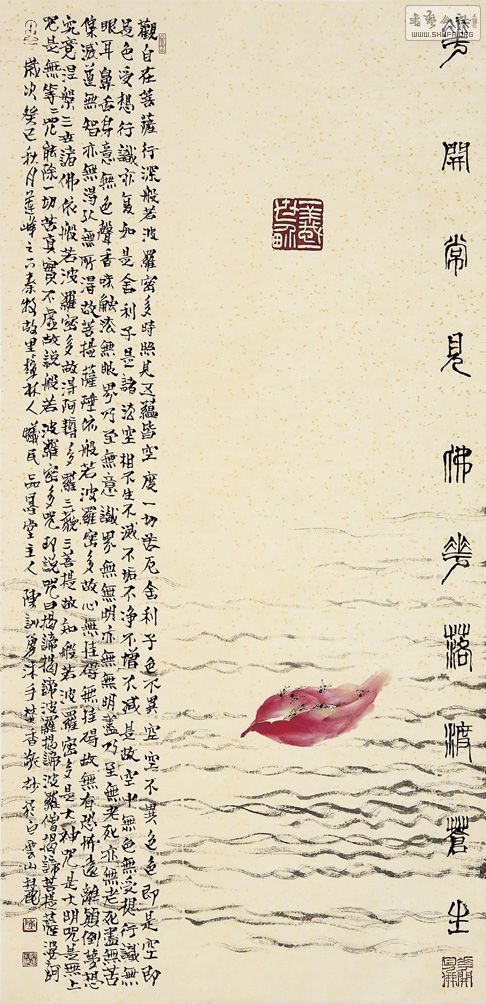 WWW.SHUFA.ORG
華開常見佛花落渡蒼生
觀自在菩薩行深般若波羅密多時照見五蘊皆空度一切苦厄舍利子色不異空空不異色色即是空即
是色受想行識亦復如是舍利子是諸法空相不生不滅不垢不净不增不減是故空中無色無受想行識無
眼耳鼻舌身意無色聲香味觸法無眼界乃至無意識界無無明亦無無明盡乃至無老死亦無老死盡無苦
集滅道無智亦無得以無所得故菩提薩埵依般若波羅密多故心無挂碍無挂碍故無有恐怖遠離顛倒夢想
究竟涅槃三世諸佛依般若波羅密多故得阿耨多羅三藐三菩提故知般若波羅密多是大神咒是大明咒是無上
咒是無等等咒能除一切苦真實不虛故說般若波羅密多咒即說咒曰揭諦揭諦波羅揭諦波羅僧揭諦菩提薩婆訶
歲次癸巳秋月蓮峰之下秦牧故里樟林人曦民品墨堂主人陳訓勇沐手焚香敬抄於白雲山麓